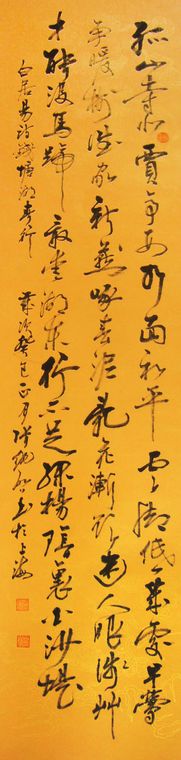 孤山寺北賈亭西水面初平云脚低幾處早鶯
爭暖樹誰家新燕啄春泥亂花漸欲迷人眼淺艸
才能沒馬蹄最愛湖東行不足綠楊陰裏白沙堤
白居易詩錢塘湖春行 歲次癸巳正月 書於上海